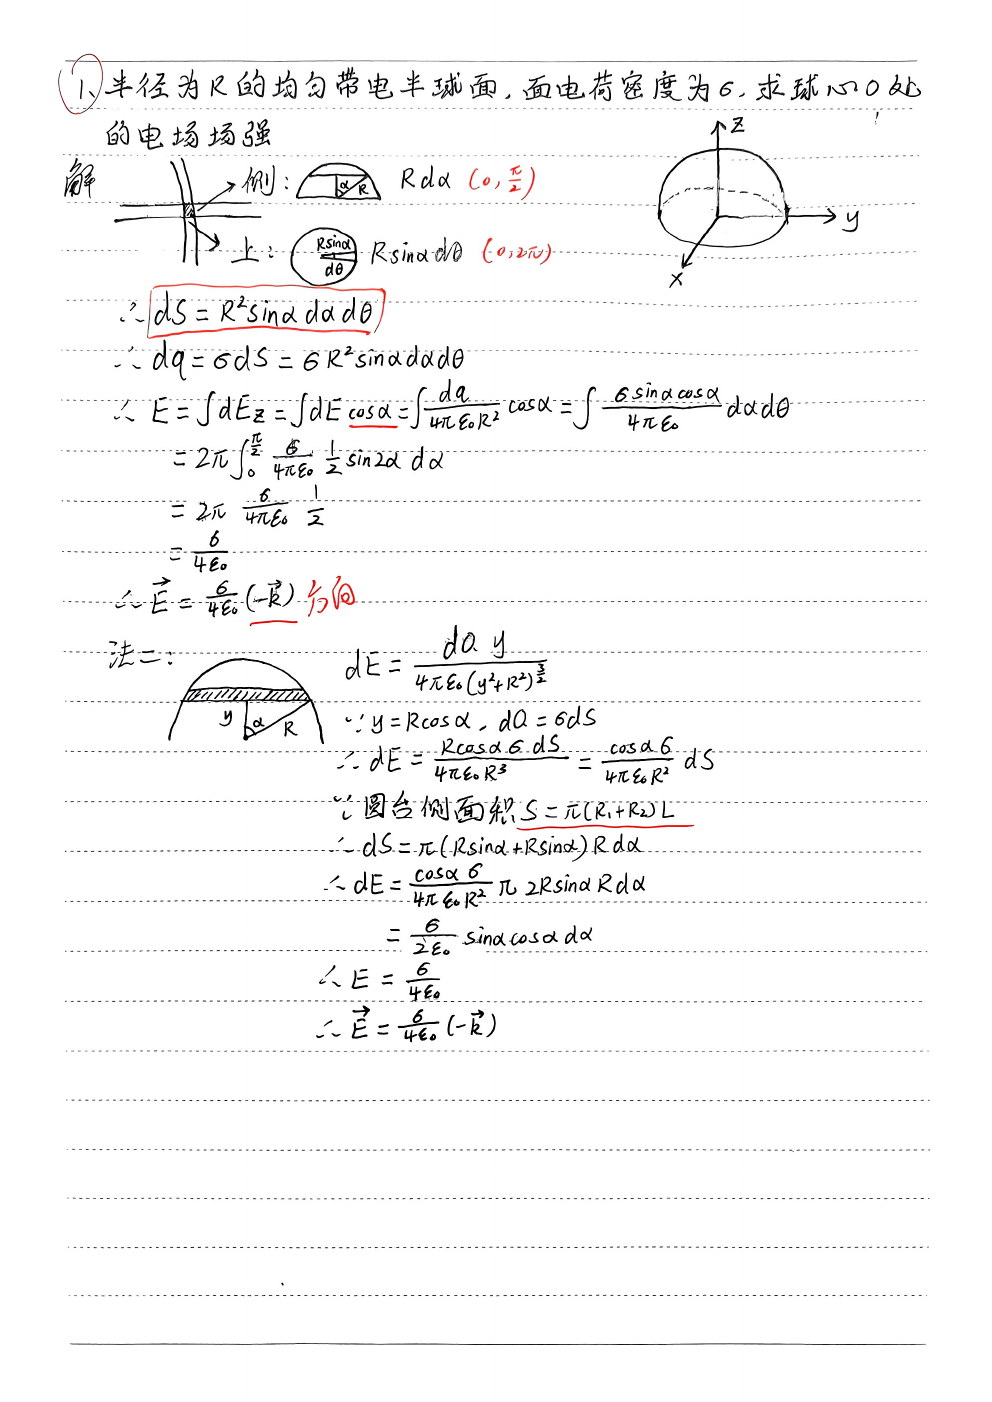 1、半径为R的均匀带电半球面,面电荷密度为σ,求球心O处
的电场场强
z
y
x
解
侧: α R Rdα (0, π/2)
上: Rsinα dθ Rsinαdθ (0,2π)
∴ dS = R²sinα dα dθ
∴ dq = σdS = σR²sinαdαdθ
∴ E = ∫dEz = ∫dE cosα = ∫ dq/(4πε₀R²) cosα = ∫ σsinαcosα/(4πε₀) dαdθ
= 2π ∫₀^(π/2) σ/(4πε₀) · 1/2 sin2α dα
= 2π σ/(4πε₀) 1/2
= σ/(4ε₀)
∴ E⃗ = σ/(4ε₀) (-k⃗) 方向
法二:
y α R
dE = dQ y/(4πε₀(y²+R²)^(3/2))
∵ y = Rcosα , dQ = σdS
∴ dE = Rcosα σ dS/(4πε₀R³) = cosα σ/(4πε₀R²) dS
∵ 圆台侧面积 S = π(R₁+R₂)L
∴ dS = π(Rsinα+Rsinα)Rdα
∴ dE = cosα σ/(4πε₀R²) π 2Rsinα Rdα
= σ/(2ε₀) sinαcosαdα
∴ E = σ/(4ε₀)
∴ E⃗ = σ/(4ε₀) (-k⃗)